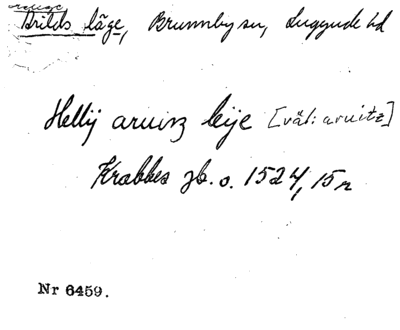 Arilds läge, Brunnby sn, Luggude hd
Hellij aruirz leije [väl: aruitz]
Krabbes jb. o. 1524, 15 r
Nr 6459.